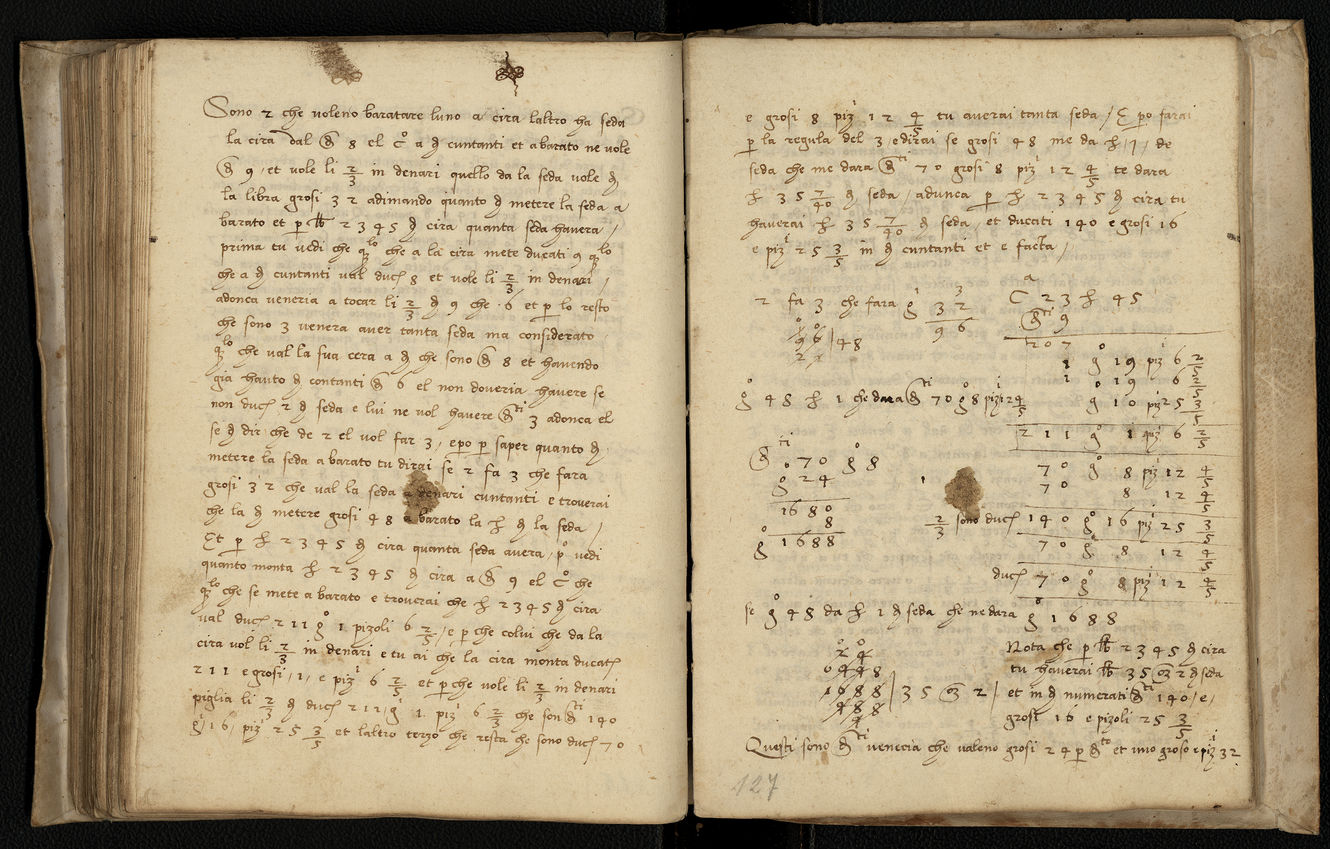 Sono 2 che voleno baratare luno a cira laltro ha seda
la cira val đ 8 el cº a đ cuntanti et a barato ne vole
đ 9, et vole li 2/3 in denari quello da la seda vole đ
la libra grosi 32 adimando quanto đ metere la seda a
barato et p lb 2345 đ cira quanta seda havera /
prima tu vedi che qlo che a la cira mete ducati 9 qlo
che a đ cuntanti val duc 8 et vole li 2/3 in denari /
adonca veneria a tocar li 2/3 đ 9 che 6 et p lo resto
che sono 3 venera aver tanta seda ma considerato
qlo che val la sua cera a đ che sono đ 8 et havendo
gia hauto đ contanti đ 6 el non doveria havere se
non duc 2 đ seda e lui ne vol havere đti 3 adonca el
se đ dir che de 2 el vol far 3, epo p saper quanto đ
metere la seda a barato tu dirai se 2 fa 3 che fara
grosi 32 che val la seda a denari cuntanti e troverai
che la đ metere grosi 48 a barato la lb đ la seda /
Et p lb 2345 đ cira quanta seda avera, pº vedi
quanto monta lb 2345 đ cira a đ 9 el cº che
qlo che se mete a barato e troverai che lb 2345 đ cira
val duc 211 gº 1 pizoli 6 2/5, e p che colui che da la
cira vol li 2/3 in denari e tu ai che la cira monta ducat
211 e grosi, 1, e pizi 6 2/5 et p che vole li 2/3 in denari
piglia li 2/3 đ duc 211, gi 1 pizi 6 2/3 che son đti 140
gi, 16, pizi 25 3/5 et laltro terzo che resta che sono duc 70
e grosi 8 pizi 12 4/5 tu averai tanta seda / E po farai
p la regula del 3, e dirai se grosi 48 me da lb, 1, de
seda che me dara đti 70 grosi 8 pizi 12 4/5 te dara
lb 35 7/40 đ seda, adunca p lb 2345 đ cira tu
haverai lb 35 7/40 đ seda, et ducati 140 e grosi 16
e pizi 25 3/5 in đ cuntanti et e facta /
2 fa 3 che fara gi 32
3
96
96 | 48
2
Ca 23 lb 45
đti 9
207
1 gº 19 pizi 6 2/5
1 0 19 6 2/5
gº 10 piz 25 3/5
211 gº 1 pizi 6 2/5
gº 48 lb 1 che dara đti 70 gº 8 pizi 12 4/5
đti 70 gº 8
gº 24
1680
8
gº 1688
70 gº 8 pizi 12 4/5
70 8 12 4/5
2/3 sono duc 140 gº 16 piz 25 3/5
70 gº 8 12 4/5
duc 70 gº 8 pizi 12 4/5
se gº 48 da lb 1 đ seda che ne dara gº 1688
24
0448
1688 | 35 oz 2 |
488
4
Nota che p lb 2345 đ cira
tu haverai lb 35 oz 2 đ seda
et in đ numerati đti 140, e,
grosi 16 e pizoli 25 3/5
Questi sono đti venecia che valeno grosi 24 p đto et uno groso e pizi 32
127